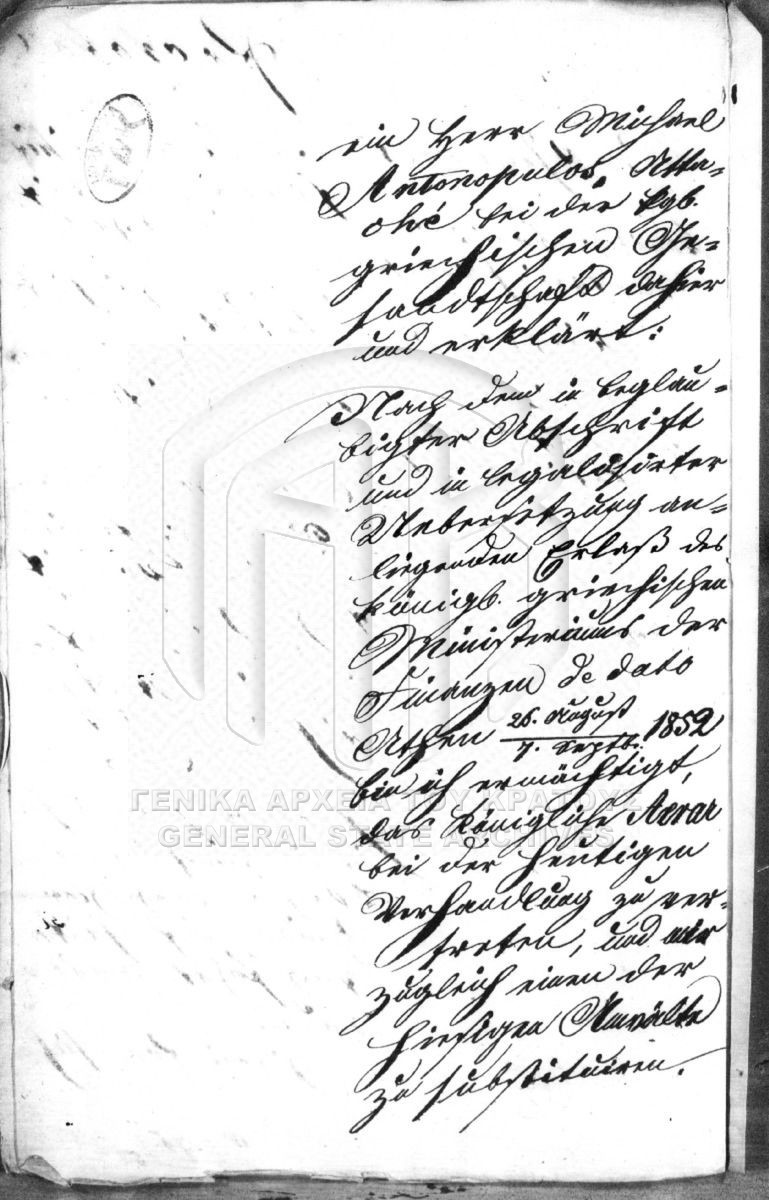 ein Herr Michael
Antonopulos, Atta-
ché bei der kgl.
griechischen Ge-
sandtschaft dahier
und erklärt:
Nach dem in beglau-
bigter Abschrift
und in legalisirter
Uebersetzung an-
liegenden Erlaß des
königl. griechischen
Ministeriums der
Finanzen de dato
Athen 26. August / 7. Septb. 1852
bin ich ermächtigt,
das Königliche Aerar
bei der heutigen
Verhandlung zu ver-
treten, und mir
zugleich einen der
hiesigen Anwälte
zu substituiren.
ΓΕΝΙΚΑ ΑΡΧΕΙΑ ΤΟΥ ΚΡΑΤΟΥΣ
GENERAL STATE ARCHIVES